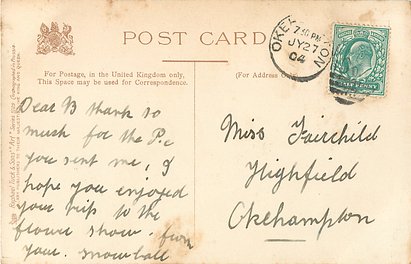 POST CARD
For Postage, in the United Kingdom only,
This Space may be used for Correspondence.
(For Address Only)
OKEHAMPTON
7.30 PM
JY 27
04
HALF PENNY
Dear B thank so
much for the P.c
you sent me, I
hope you enjoyed
your trip to the
flower show. from
your. snowball
Miss Fairchild
Highfield
Okehampton